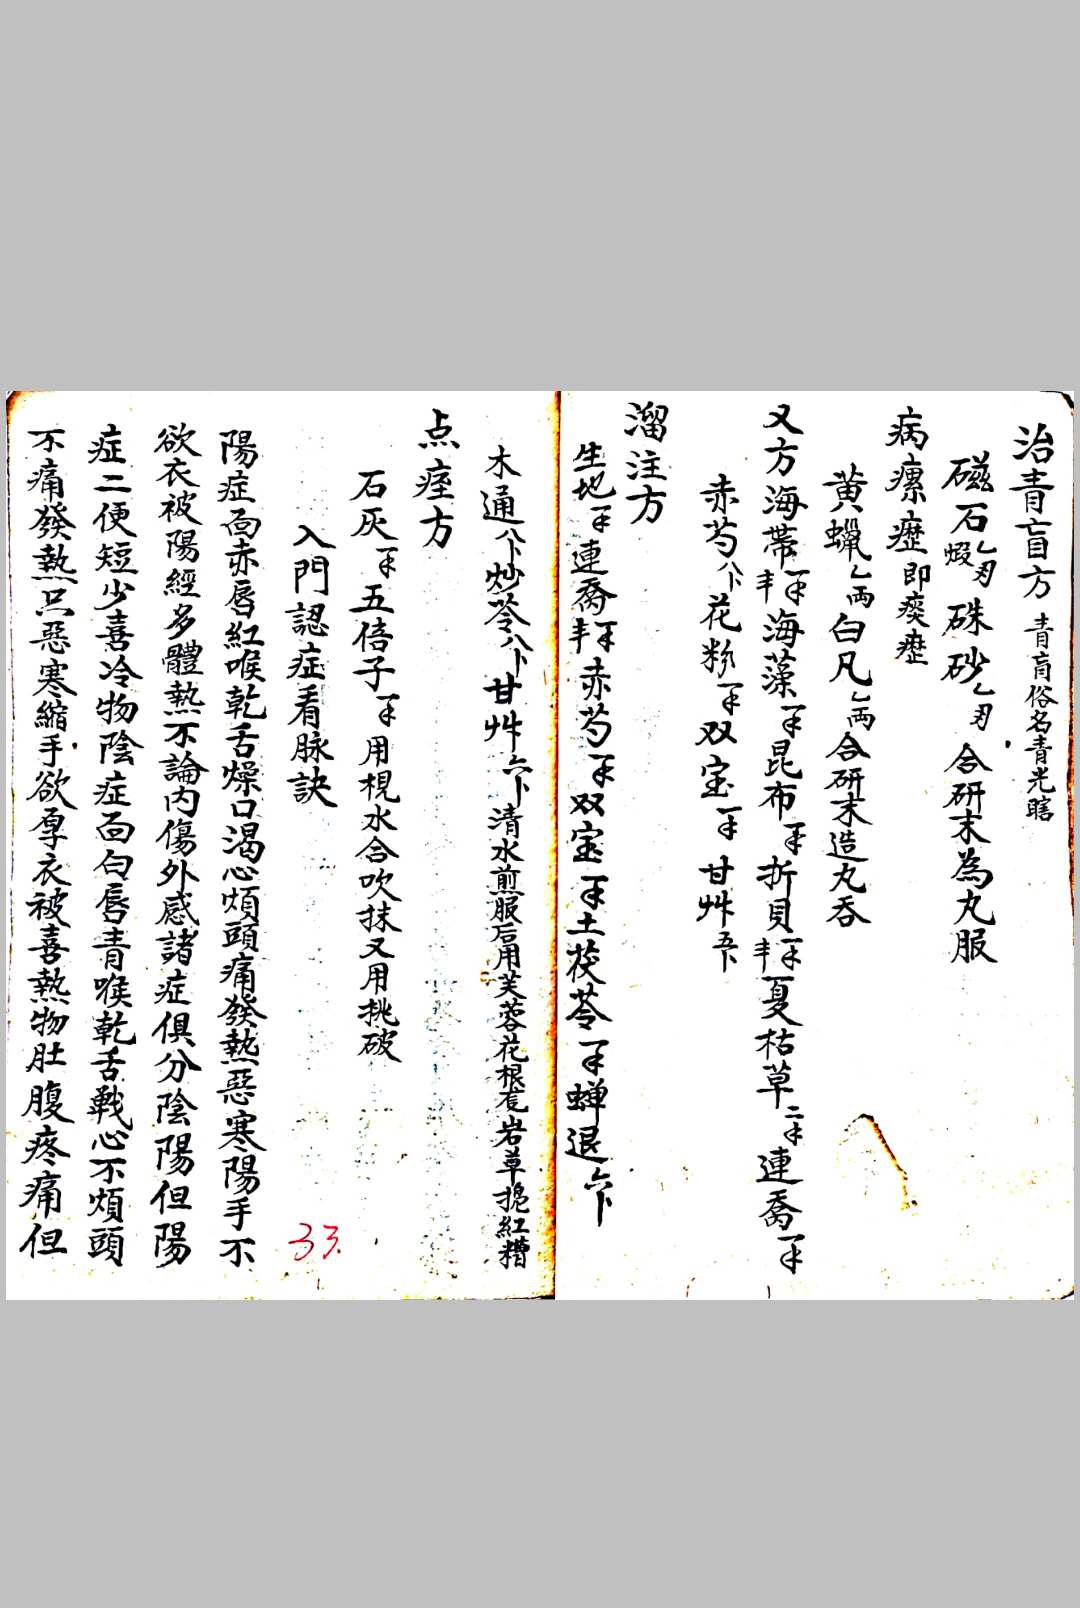 治青盲方 青肓俗名青光瞎
磁石煆 硃砂 合研末為丸服
病瘰癧即痰癧
黄蠟乙両白凡乙両合研末造丸吞
又方海帶 海藻 昆布 折貝 夏枯草 連喬
赤芍 花粉 双宝 甘艸
溜注方
生地 連喬 赤芍 双宝 土茯苓 蝉退
木通 炒苓 甘艸 清水煎服后用芙蓉花根 岩草 紅糟
点痓方
石灰 五倍子 用梘水合吹抹又用挑破
入門認症看脉訣
陽症面赤唇紅喉乾舌燥口渴心煩頭痛發熱惡寒陽手不
欲衣被陽經多體熱不論內傷外感諸症俱分陰陽但陽
症二便短少喜冷物陰症面白唇青喉乾舌戰心不煩頭
不痛發熱只惡寒縮手欲厚衣被喜熱物肚腹疼痛但
33.